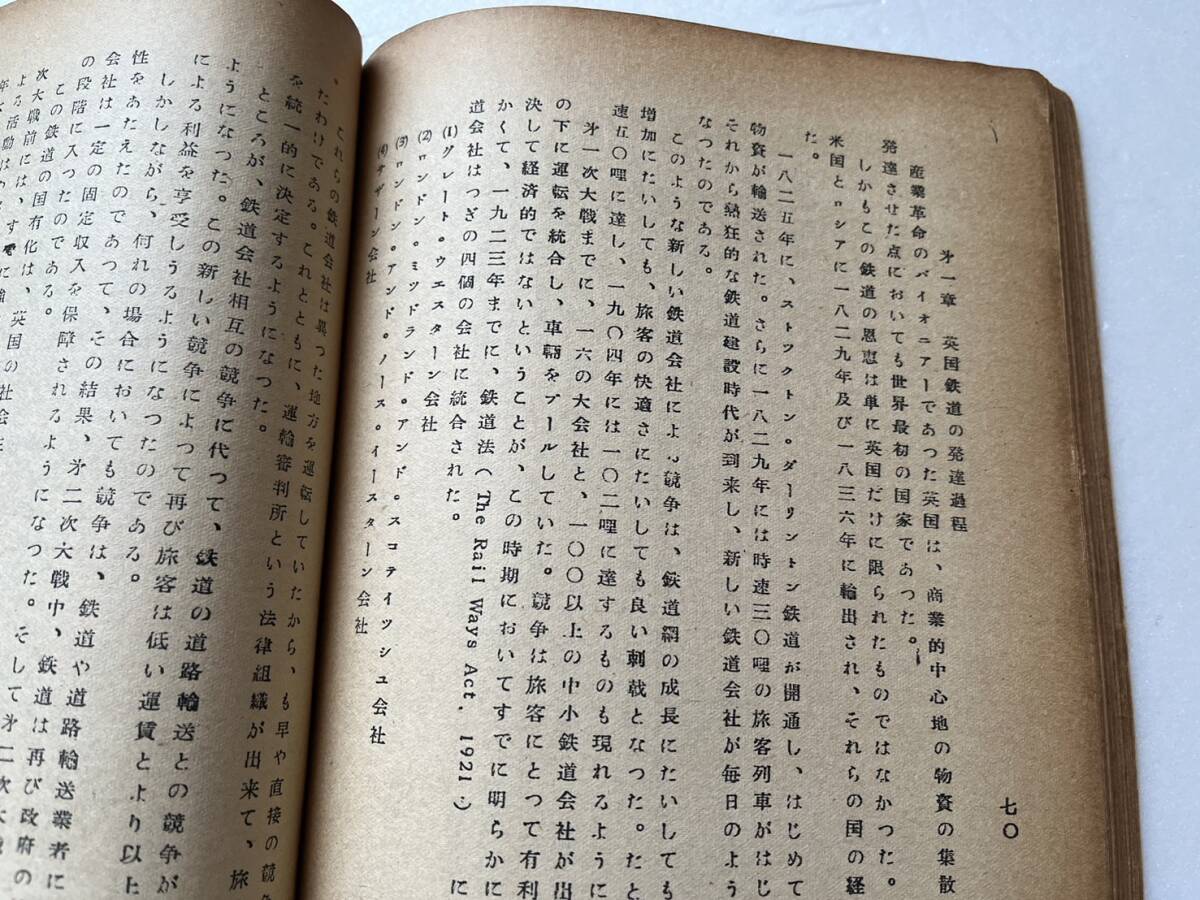 七〇
㐧一章　英国鉄道の発達過程
産業革命のパイオニアーであった英国は、商業的中心地の物資の集散
発達させた点においても世界最初の国家であった。
しかもこの鉄道の恩恵は単に英国だけに限られたものではなかつた。
米国とロシアに一八二九年及び一八三六年に輸出され、それらの国の経
た。
一八二五年に、ストツクトン・ダーリントン鉄道が開通し、はじめて
物資が輸送された。さらに一八二九年には時速三〇哩の旅客列車がはじ
それから熱狂的な鉄道建設時代が到来し、新しい鉄道会社が毎日のよう
なつたのである。
このような新しい鉄道会社による競争は、鉄道網の成長にたいしても
増加にたいしても、旅客の快適さにたいしても良い刺戟となつた。たと
速五〇哩に達し、一九〇四年には一〇二哩に達するものも現れるように
㐧一次大戦までに、一六の大会社と、一〇〇以上の中小鉄道会社が出
の下に運転を統合し、車輛をプールしていた。競争は旅客にとつて有利
決して経済的ではないということが、この時期においてすでに明らかに
かくて、一九二三年までに、鉄道法（The Rail Ways Act. 1921.）に
道会社はつぎの四個の会社に統合された。
(1) グレート・ウエスターン会社
(2) ロンドン・ミツドランド・アンド・スコテイツシユ会社
(3) ロンドン・アンド・ノース・イースターン会社
(4) サザーン会社
これらの鉄道会社は異つた地方を運転していたから、も早や直接の競
たわけである。これとともに、運輸審判所という法律組織が出来て、旅
を統一的に決定するようになつた。
ところが、鉄道会社相互の競争に代つて、鉄道の道路輸送との競争が
ようになつた。この新しい競争によつて再び旅客は低い運賃とより以上
による利益を享受しうるようになつたのである。
しかしながら、何れの場合においても競争は、鉄道や道路輸送業者に
性をあたえたのであつて、その結果、㐧二次大戦中、鉄道は再び政府の
会社は一定の固定収入を保障されるようになつた。そして㐧二次大
の段階に入つたのである。
この鉄道の国有化は、英国の社会
次大戦前には、す